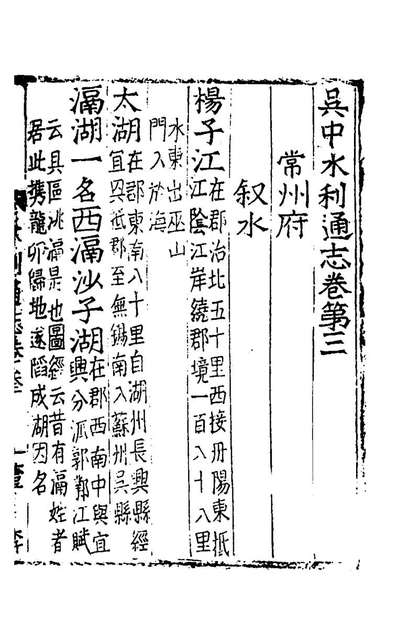 吳中水利通志卷第三
常州府
叙水
楊子江在郡治北五十里西接丹陽東抵
江陰江岸繞郡境一百八十八里
水東出巫山
門入於海
太湖在郡東南八十里自湖州長興縣經
宜興抵郡至無錫南入蘇州吳縣
滆湖一名西滆沙子湖在郡西南中與宜
興分派郭璞江賦
云具區洮滆是也圖經云昔有滆姓者
君此携龍卵歸地遂陷成湖因名
水利通志卷